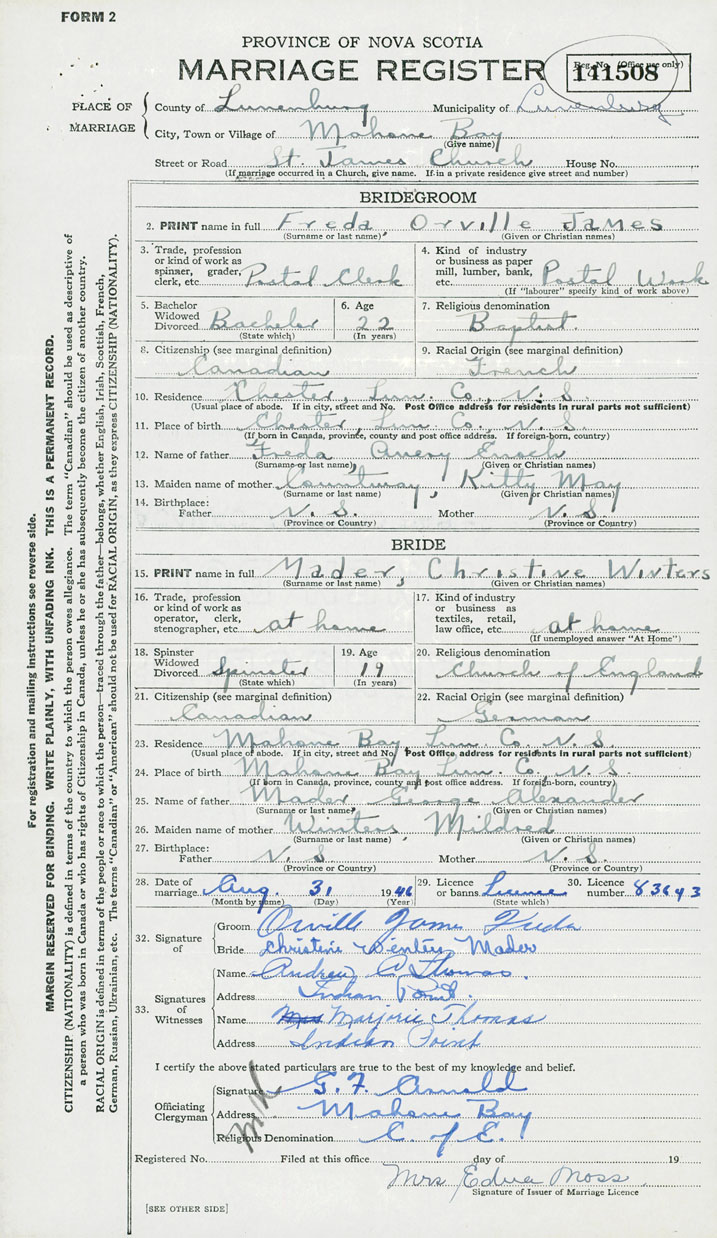 FORM 2
PROVINCE OF NOVA SCOTIA
MARRIAGE REGISTER
Reg. No. (Office use only)
141508
PLACE OF MARRIAGE
County of Lunenburg Municipality of Lunenburg
City, Town or Village of Mahone Bay
(Give name)
Street or Road St. James Church House No.
(If marriage occurred in a Church, give name. If in a private residence give street and number)
BRIDEGROOM
2. PRINT name in full Freda, Orville James
(Surname or last name) (Given or Christian names)
3. Trade, profession or kind of work as spinner, grader, clerk, etc. Postal Clerk
4. Kind of industry or business as paper mill, lumber, bank, etc. Postal Work
(If "labourer" specify kind of work above)
5. Bachelor Widowed Divorced Bachelor
(State which)
6. Age 22
(In years)
7. Religious denomination
Baptist.
8. Citizenship (see marginal definition)
Canadian
9. Racial Origin (see marginal definition)
French
10. Residence Chester, Lun. Co., N. S.
(Usual place of abode. If in city, street and No. Post Office address for residents in rural parts not sufficient)
11. Place of birth Chester, Lun. Co., N. S.
(If born in Canada, province, county and post office address. If foreign-born, country)
12. Name of father Freda, Avery Enoch
(Surname or last name) (Given or Christian names)
13. Maiden name of mother Countway, Kitty May
(Surname or last name) (Given or Christian names)
14. Birthplace:
Father N. S. Mother N. S.
(Province or Country) (Province or Country)
BRIDE
15. PRINT name in full Mader, Christine Winters
(Surname or last name) (Given or Christian names)
16. Trade, profession or kind of work as operator, clerk, stenographer, etc. at home
17. Kind of industry or business as textiles, retail, law office, etc. at home
(If unemployed answer "At Home")
18. Spinster Widowed Divorced Spinster
(State which)
19. Age 19
(In years)
20. Religious denomination
Church of England
21. Citizenship (see marginal definition)
Canadian
22. Racial Origin (see marginal definition)
German
23. Residence Mahone Bay Lun. Co. N. S.
(Usual place of abode. If in city, street and No. Post Office address for residents in rural parts not sufficient)
24. Place of birth Mahone Bay Lun. Co. N. S.
(If born in Canada, province, county and post office address. If foreign-born, country)
25. Name of father Mader, George Alexander
(Surname or last name) (Given or Christian names)
26. Maiden name of mother Winters, Mildred
(Surname or last name) (Given or Christian names)
27. Birthplace:
Father N. S. Mother N. S.
(Province or Country) (Province or Country)
28. Date of marriage Aug. 31 1946
(Month by name) (Day) (Year)
29. Licence or banns Licence
(State which)
30. Licence number 83643
32. Signature of
Groom Orville James Freda
Bride Christine Winters Mader
33. Signatures of Witnesses
Name Andrew A Thomas.
Address Indian Point.
Name Mrs Marjorie Thomas
Address Indian Point
I certify the above stated particulars are true to the best of my knowledge and belief.
Officiating Clergyman
Signature G. F. Arnold
Address Mahone Bay
Religious Denomination C. of E.
Registered No. Filed at this office day of 19
Mrs Edna Moss
Signature of Issuer of Marriage Licence
[SEE OTHER SIDE]
For registration and mailing instructions see reverse side.
MARGIN RESERVED FOR BINDING. WRITE PLAINLY, WITH UNFADING INK. THIS IS A PERMANENT RECORD.
CITIZENSHIP (NATIONALITY) is defined in terms of the country to which the person owes allegiance. The term "Canadian" should be used as descriptive of
a person who was born in Canada or who has rights of Citizenship in Canada, unless he or she has subsequently become the citizen of another country.
RACIAL ORIGIN is defined in terms of the people or race to which the person—traced through the father—belongs, whether English, Irish, Scottish, French,
German, Russian, Ukrainian, etc. The terms "Canadian" or "American" should not be used for RACIAL ORIGIN, as they express CITIZENSHIP (NATIONALITY).